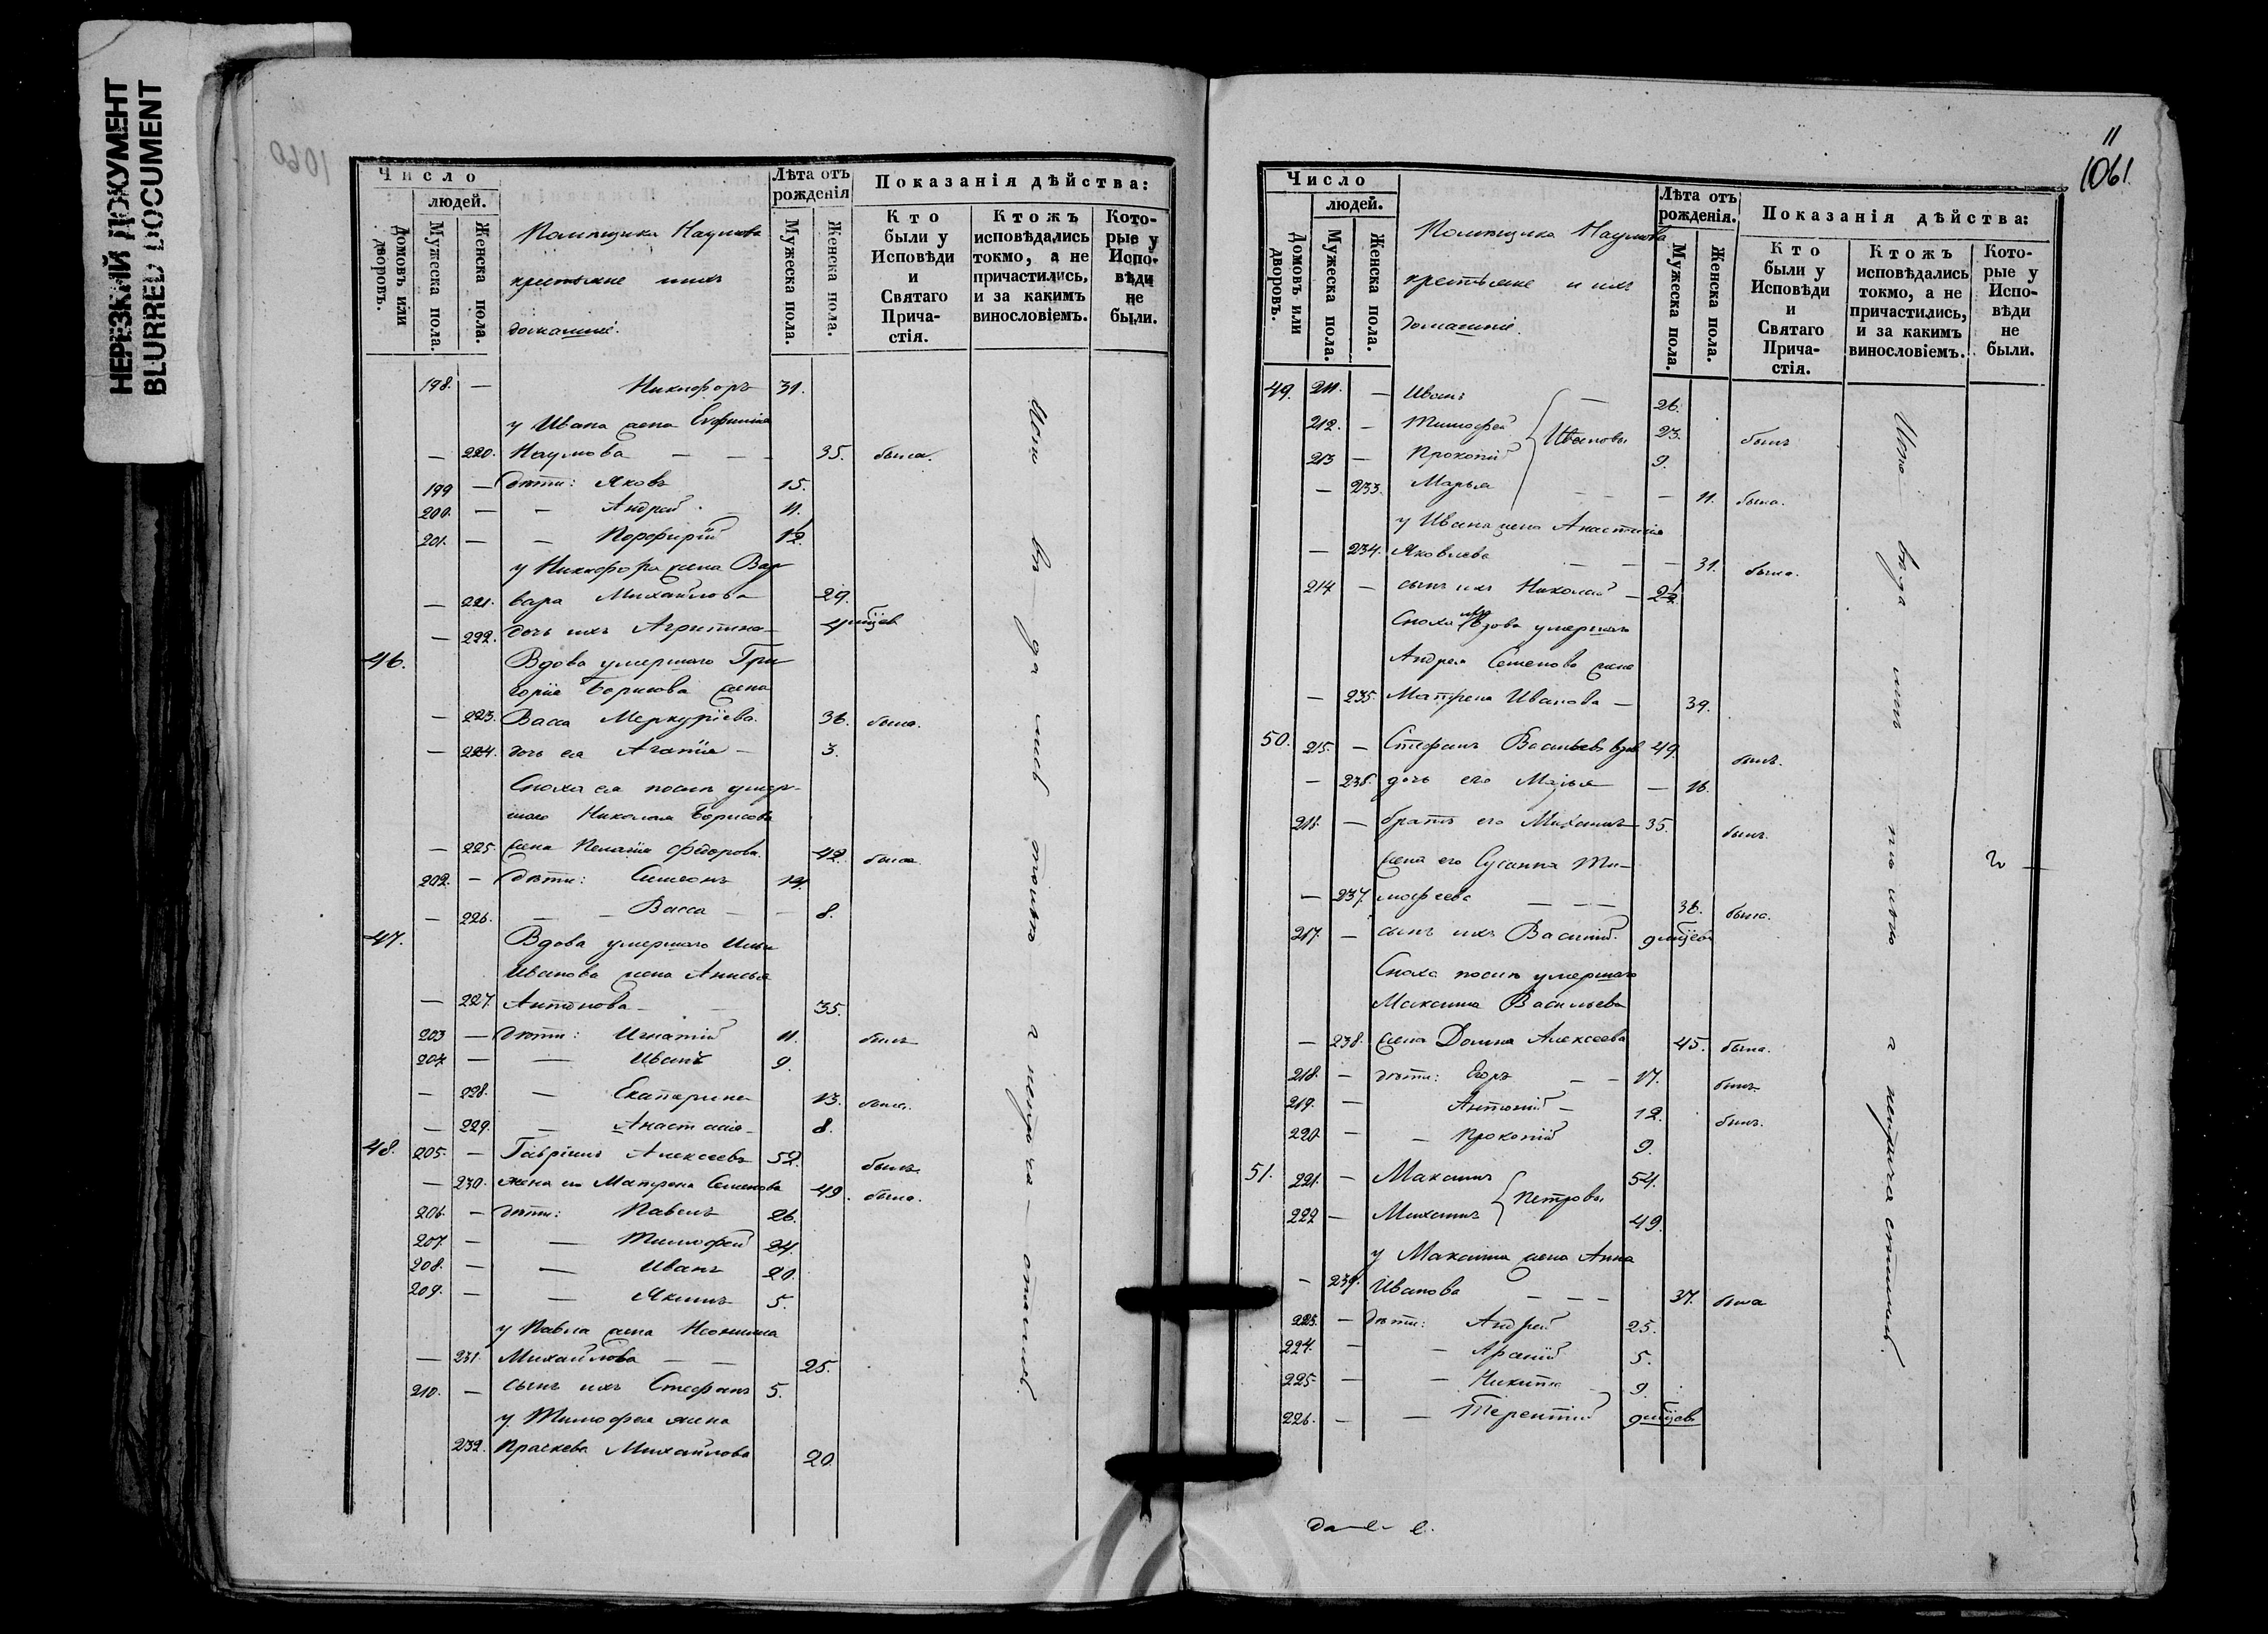 НЕРЕЗКИЙ ДОКУМЕНТ
BLURRED DOCUMENT
1060
Число
людей.
Домовъ или дворовъ.
Мужеска пола.
Женска пола.
Помѣщика Наумова
крестьяне и ихъ
домашніе.
Лѣта отъ рожденія
Мужеска пола.
Женска пола.
Показанія дѣйства:
Кто были у Исповѣди и Святаго Причастія.
Ктожъ исповѣдались токмо, а не причастились, и за какимъ винословіемъ.
Которые у Исповѣди не были.
198. — Никифоръ 31.
у Ивана жена Евфимія
— 220. Наумова — — 35. была.
199 — дѣти: Яковъ 15.
200. — — Андрей 11.
201. — — Порфирій 12.
у Никифора жена Вар
— 221. вара Михайлова 29.
— 222. дочь ихъ Агрипина
46. Вдова умершаго Гри
горія Борисова жена
— 223. Васса Меркуріева. 36. была.
— 224. дочь ея Агапія — 3.
Сноха ея послѣ умер-
шаго Николая Борисова
— 225. жена Пелагія Федорова. 42. была
202. — дѣти: Симеонъ 14.
— 226. — — Васса — — 8.
47. Вдова умершаго Ильи
Иванова жена Анисья
— 227. Антонова — 35.
203 — дѣти: Игнатій 11. былъ
204 — — Иванъ 9.
— 228. — Екатерина 13. была.
— 229. — Анастасія 8.
48. 205. — Гавріилъ Алексеевъ 52. былъ
— 230. жена его Матрена Семенова 49. была.
206. — дѣти: Павелъ 26.
207. — — Тимофей 24.
208. — — Иванъ 20.
209. — — Якимъ 5.
у Павла жена Неонила
— 231. Михайлова — — 25.
210. — сынъ ихъ Стефанъ 5.
у Тимофея жена
232. Праскева Михайлова 20.
11
1061.
Число
людей.
Домовъ или дворовъ.
Мужеска пола.
Женска пола.
Помѣщика Наумова
крестьяне и ихъ
домашніе.
Лѣта отъ рожденія.
Мужеска пола.
Женска пола.
Показанія дѣйства:
Кто были у Исповѣди и Святаго Причастія.
Ктожъ исповѣдались токмо, а не причастились, и за какимъ винословіемъ.
Которые у Исповѣди не были.
49. 211. — Иванъ — 26.
212. — Тимофей Ивановы 23. былъ
213 — Прокопій 9.
— 233. Марья — — — 11. была.
у Ивана жена Анастасія
— 234. Яковлева — — — 31. была.
214 — сынъ ихъ Николай —
Сноха ихъ вдова умершаго
Андрея Семенова жена
— 235. Матрена Иванова — 39.
50. 215. — Стефанъ Васильевъ вдов 49. былъ.
— 236. дочь его Марья — 16.
216. — братъ его Михаилъ 35. былъ.
жена его Сусанна Ти-
— 237. мофеева — — — 36. была.
217. — сынъ ихъ Василій.
Сноха послѣ умершаго
Максима Васильева
— 238. жена Домна Алексеева 45. была.
218. — дѣти: Егоръ — — 17. былъ
219. — Антоній — 12. былъ.
220 — — Прокопій 9.
51. 221. — Максимъ 54.
Петровы
222 — Михаилъ 49.
у Максима жена Анна
— 239. Иванова — — — 37. была
223. — дѣти: Андрей 25.
224. — — 5.
225 — — Никита 9.
226. — — Терентій